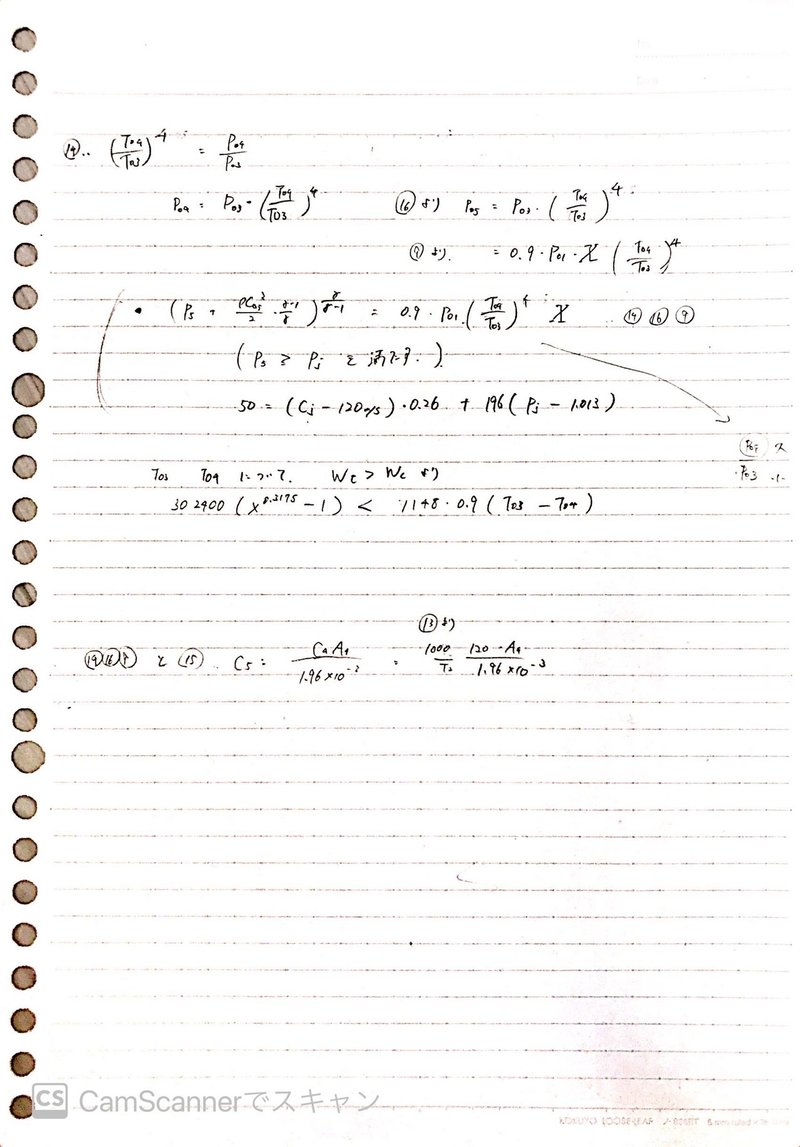 ⑭.. (T04/T03)^4 = P04/P03
P04 = P03・(T04/T03)^4 ⑯より P05 = P03・(T04/T03)^4
⑨より = 0.9・P01・X (T04/T03)^4
・(P5 + ρC05²/2・γ-1/γ)^γ/γ-1 = 0.9・P01・(T04/T03)^4 X …⑭⑯⑨
(P5 ≥ Pj を満たす.)
50 = (Cj - 120m/s)・0.26 + 196(Pj - 1.013)
T03 T04 について. Wt > Wc より
302400(X^0.3175 - 1) < 1148・0.9(T03 - T04)
⑬より
と⑮. C5 = CaA4/1.96×10^-3 = 1000/T3 120・A4/1.96×10^-3
CS CamScannerでスキャン